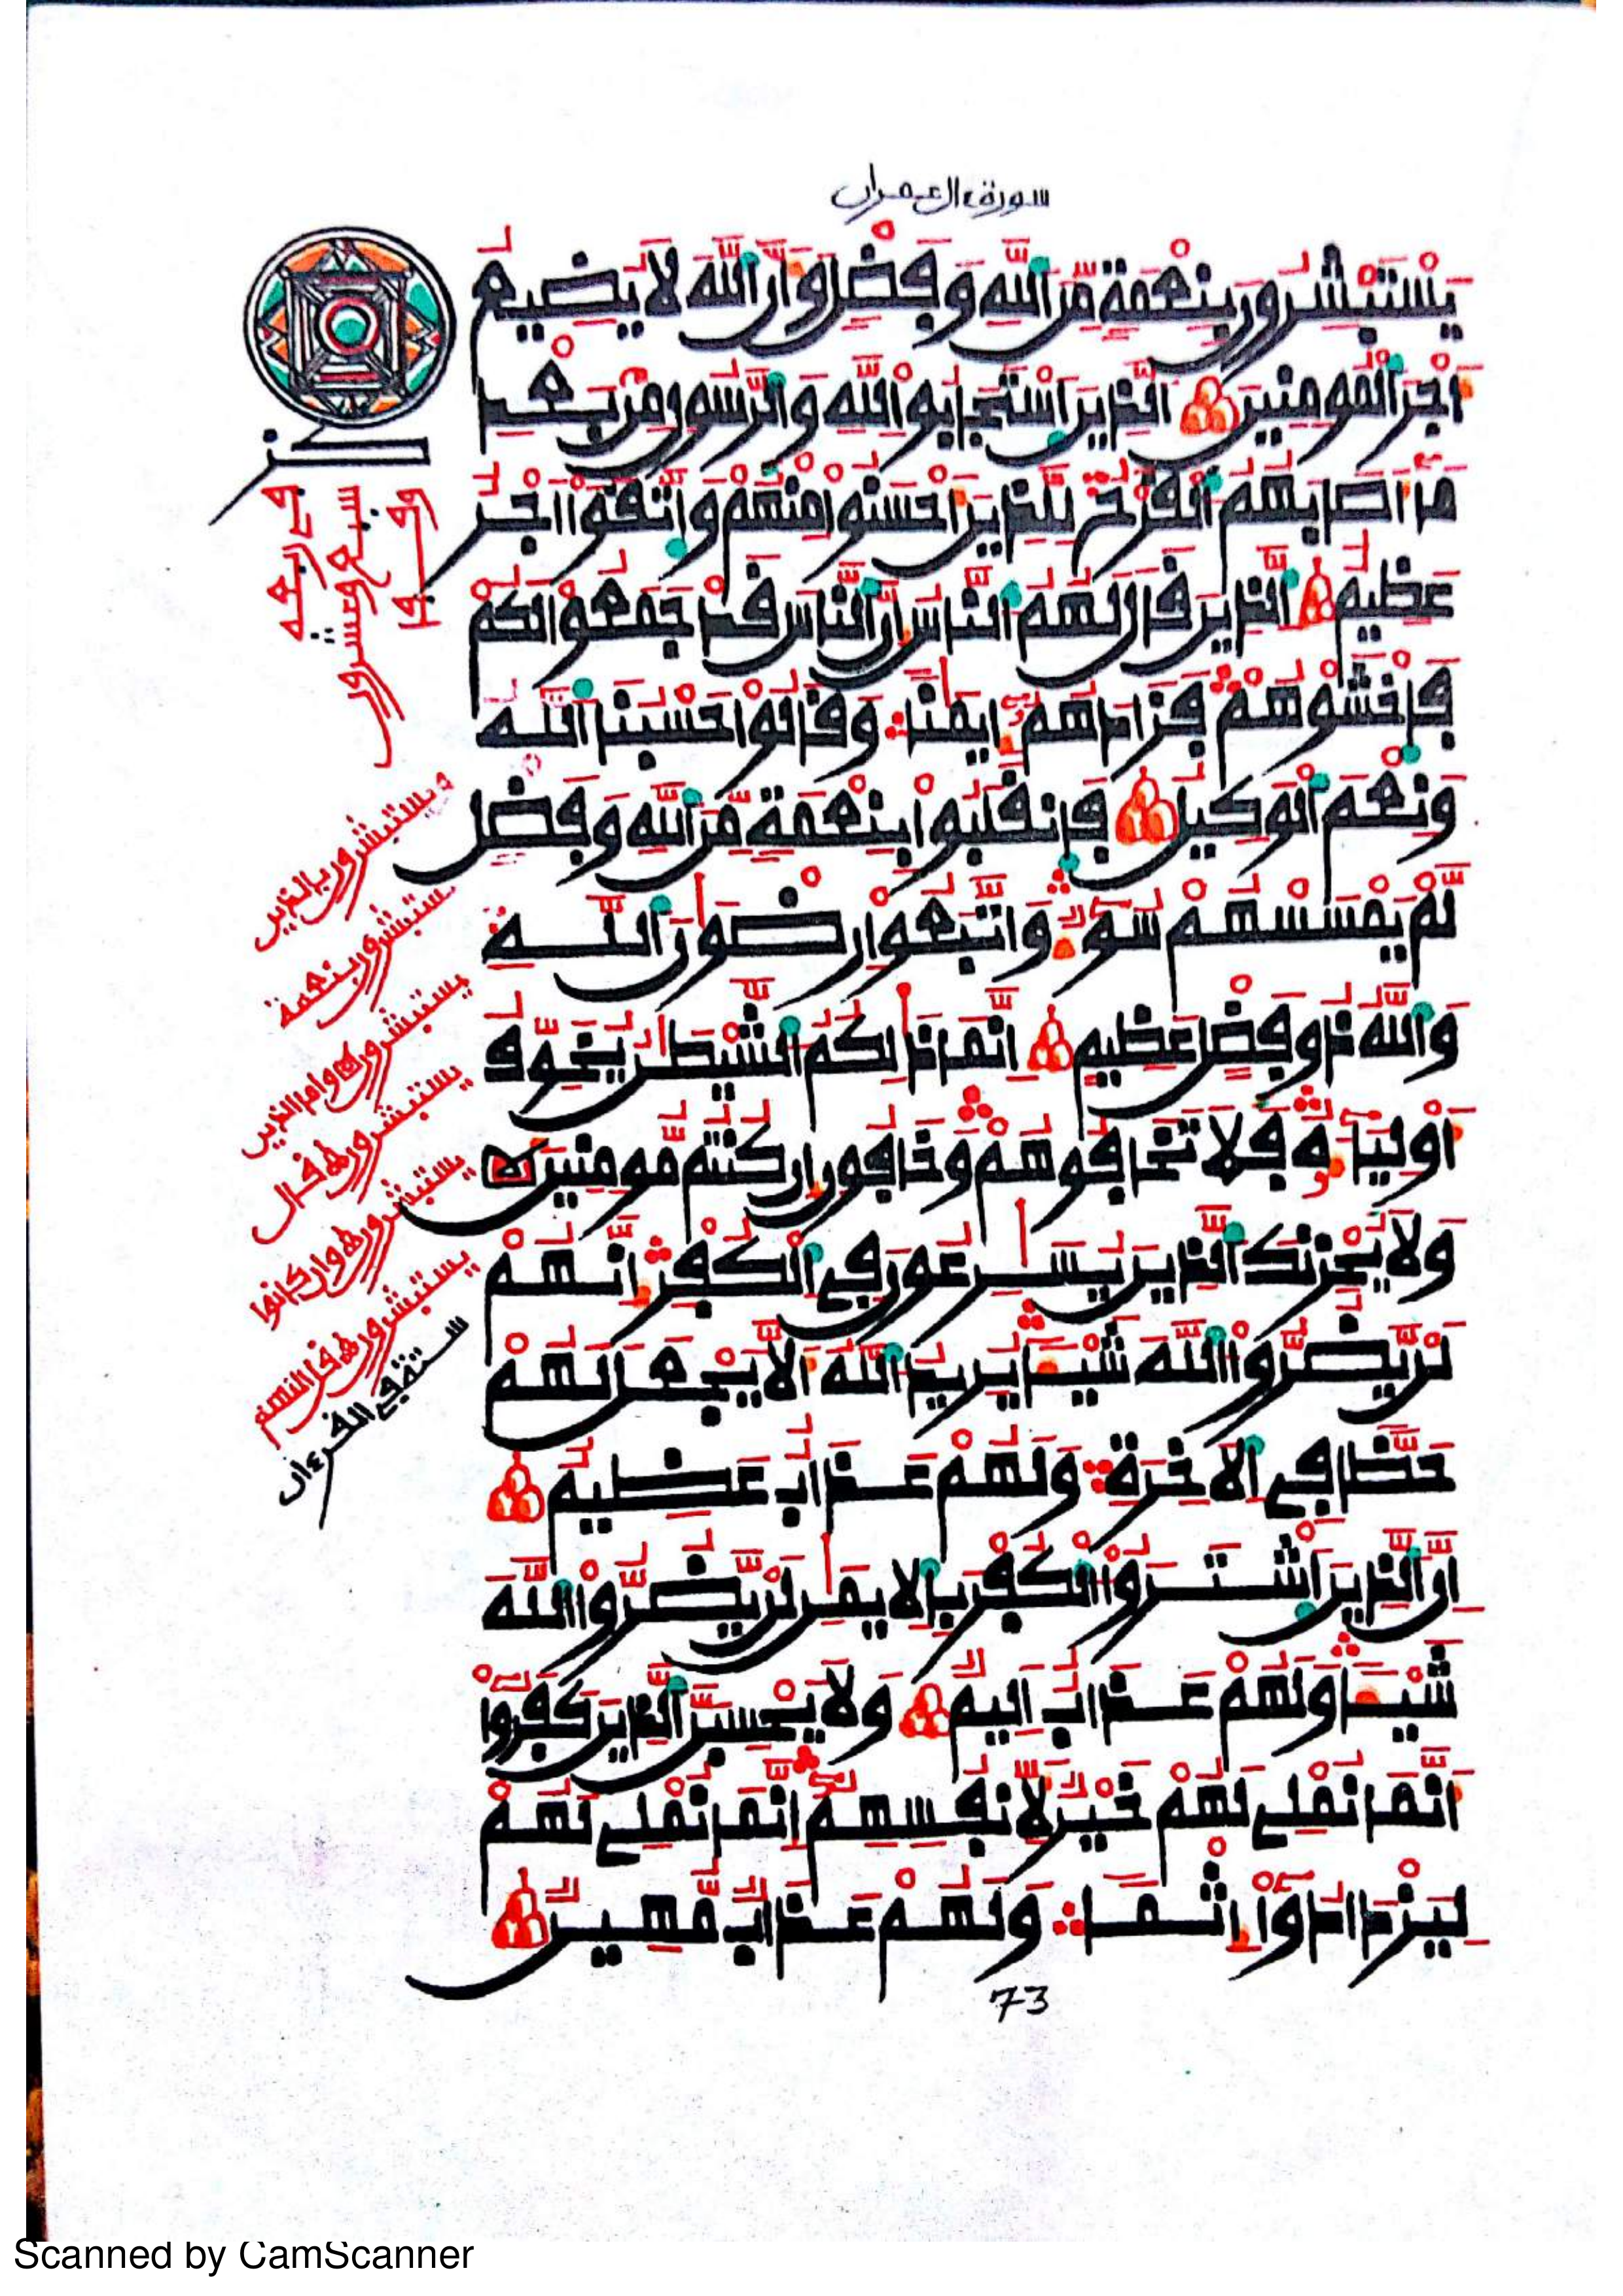 سورة ءال عمران
يَسْتَبْشِرُونَ بِنِعْمَةٍ مِّنَ اَللَّهِ وَفَضْلٍ وَأَنَّ اَللَّهَ لَا يُضِيعُ
أَجْرَ اَلْمُومِنِينَ اَلذِينَ اَسْتَجَابُواْ لِلهِ وَالرَّسُولِ مِنۢ بَعْدِ
مَا أَصَابَهُمُ اَلْقَرْحُ لِلذِينَ أَحْسَنُواْ مِنْهُمْ وَاتَّقَوَاْ اَجْرٌ
عَظِيمٌ اَلذِينَ قَالَ لَهُمُ اَلنَّاسُ إِنَّ اَلنَّاسَ قَدْ جَمَعُواْ لَكُمْ
فَاخْشَوْهُمْ فَزَادَهُمُ إِيمَٰناً وَقَالُواْ حَسْبُنَا اَللَّهُ
وَنِعْمَ اَلْوَكِيلُ فَانقَلَبُواْ بِنِعْمَةٍ مِّنَ اَللَّهِ وَفَضْلٍ
لَّمْ يَمْسَسْهُمْ سُوٓءٌ وَاتَّبَعُواْ رِضْوَٰنَ اَللَّهِ
وَاللَّهُ ذُو فَضْلٍ عَظِيمٍ إِنَّمَا ذَٰلِكُمُ اَلشَّيْطَٰنُ يُخَوِّفُ
أَوْلِيَآءَهُ فَلَا تَخَافُوهُمْ وَخَافُونِ إِن كُنتُم مُّومِنِينَ
وَلَا يُحْزِنكَ اَلذِينَ يُسَٰرِعُونَ فِي اِلْكُفْرِ إِنَّهُمْ
لَنْ يَّضُرُّواْ اَللَّهَ شَيْـٔاً يُرِيدُ اَللَّهُ أَلَّا يَجْعَلَ لَهُمْ
حَظّاً فِي اِلَاخِرَةِ وَلَهُمْ عَذَابٌ عَظِيمٌ
إِنَّ اَلذِينَ اَشْتَرَوُاْ اَلْكُفْرَ بِالِايمَٰنِ لَنْ يَّضُرُّواْ اَللَّهَ
شَيْـٔاً وَلَهُمْ عَذَابٌ اَلِيمٌ وَلَا يَحْسِبَنَّ اَلذِينَ كَفَرُواْ
أَنَّمَا نُمْلِي لَهُمْ خَيْرٌ لِّأَنفُسِهِمُ إِنَّمَا نُمْلِي لَهُمْ
لِيَزْدَادُواْ إِثْماً وَلَهُمْ عَذَابٌ مُّهِينٌ
73
ويستبشرون بالذين
يستبشرون بنعمة
يستبشرون وأما الذين
يستبشرون قال
يستبشرون وإن كانوا
Scanned by CamScanner